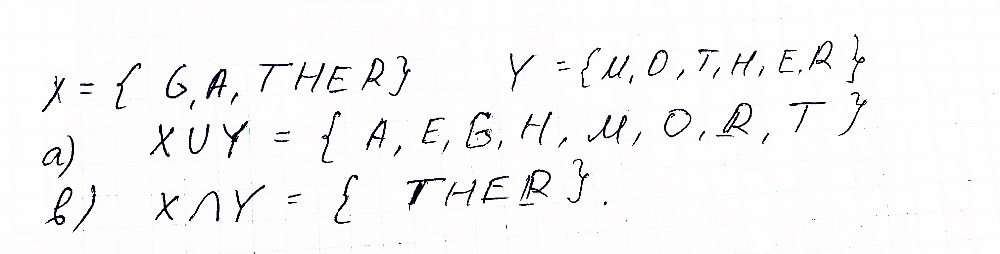 X = { G, A, THER}   Y = {M, O, T, H, E, R}
a) X ∪ Y = { A, E, G, H, M, O, R, T }
b) X ∩ Y = { THER}.